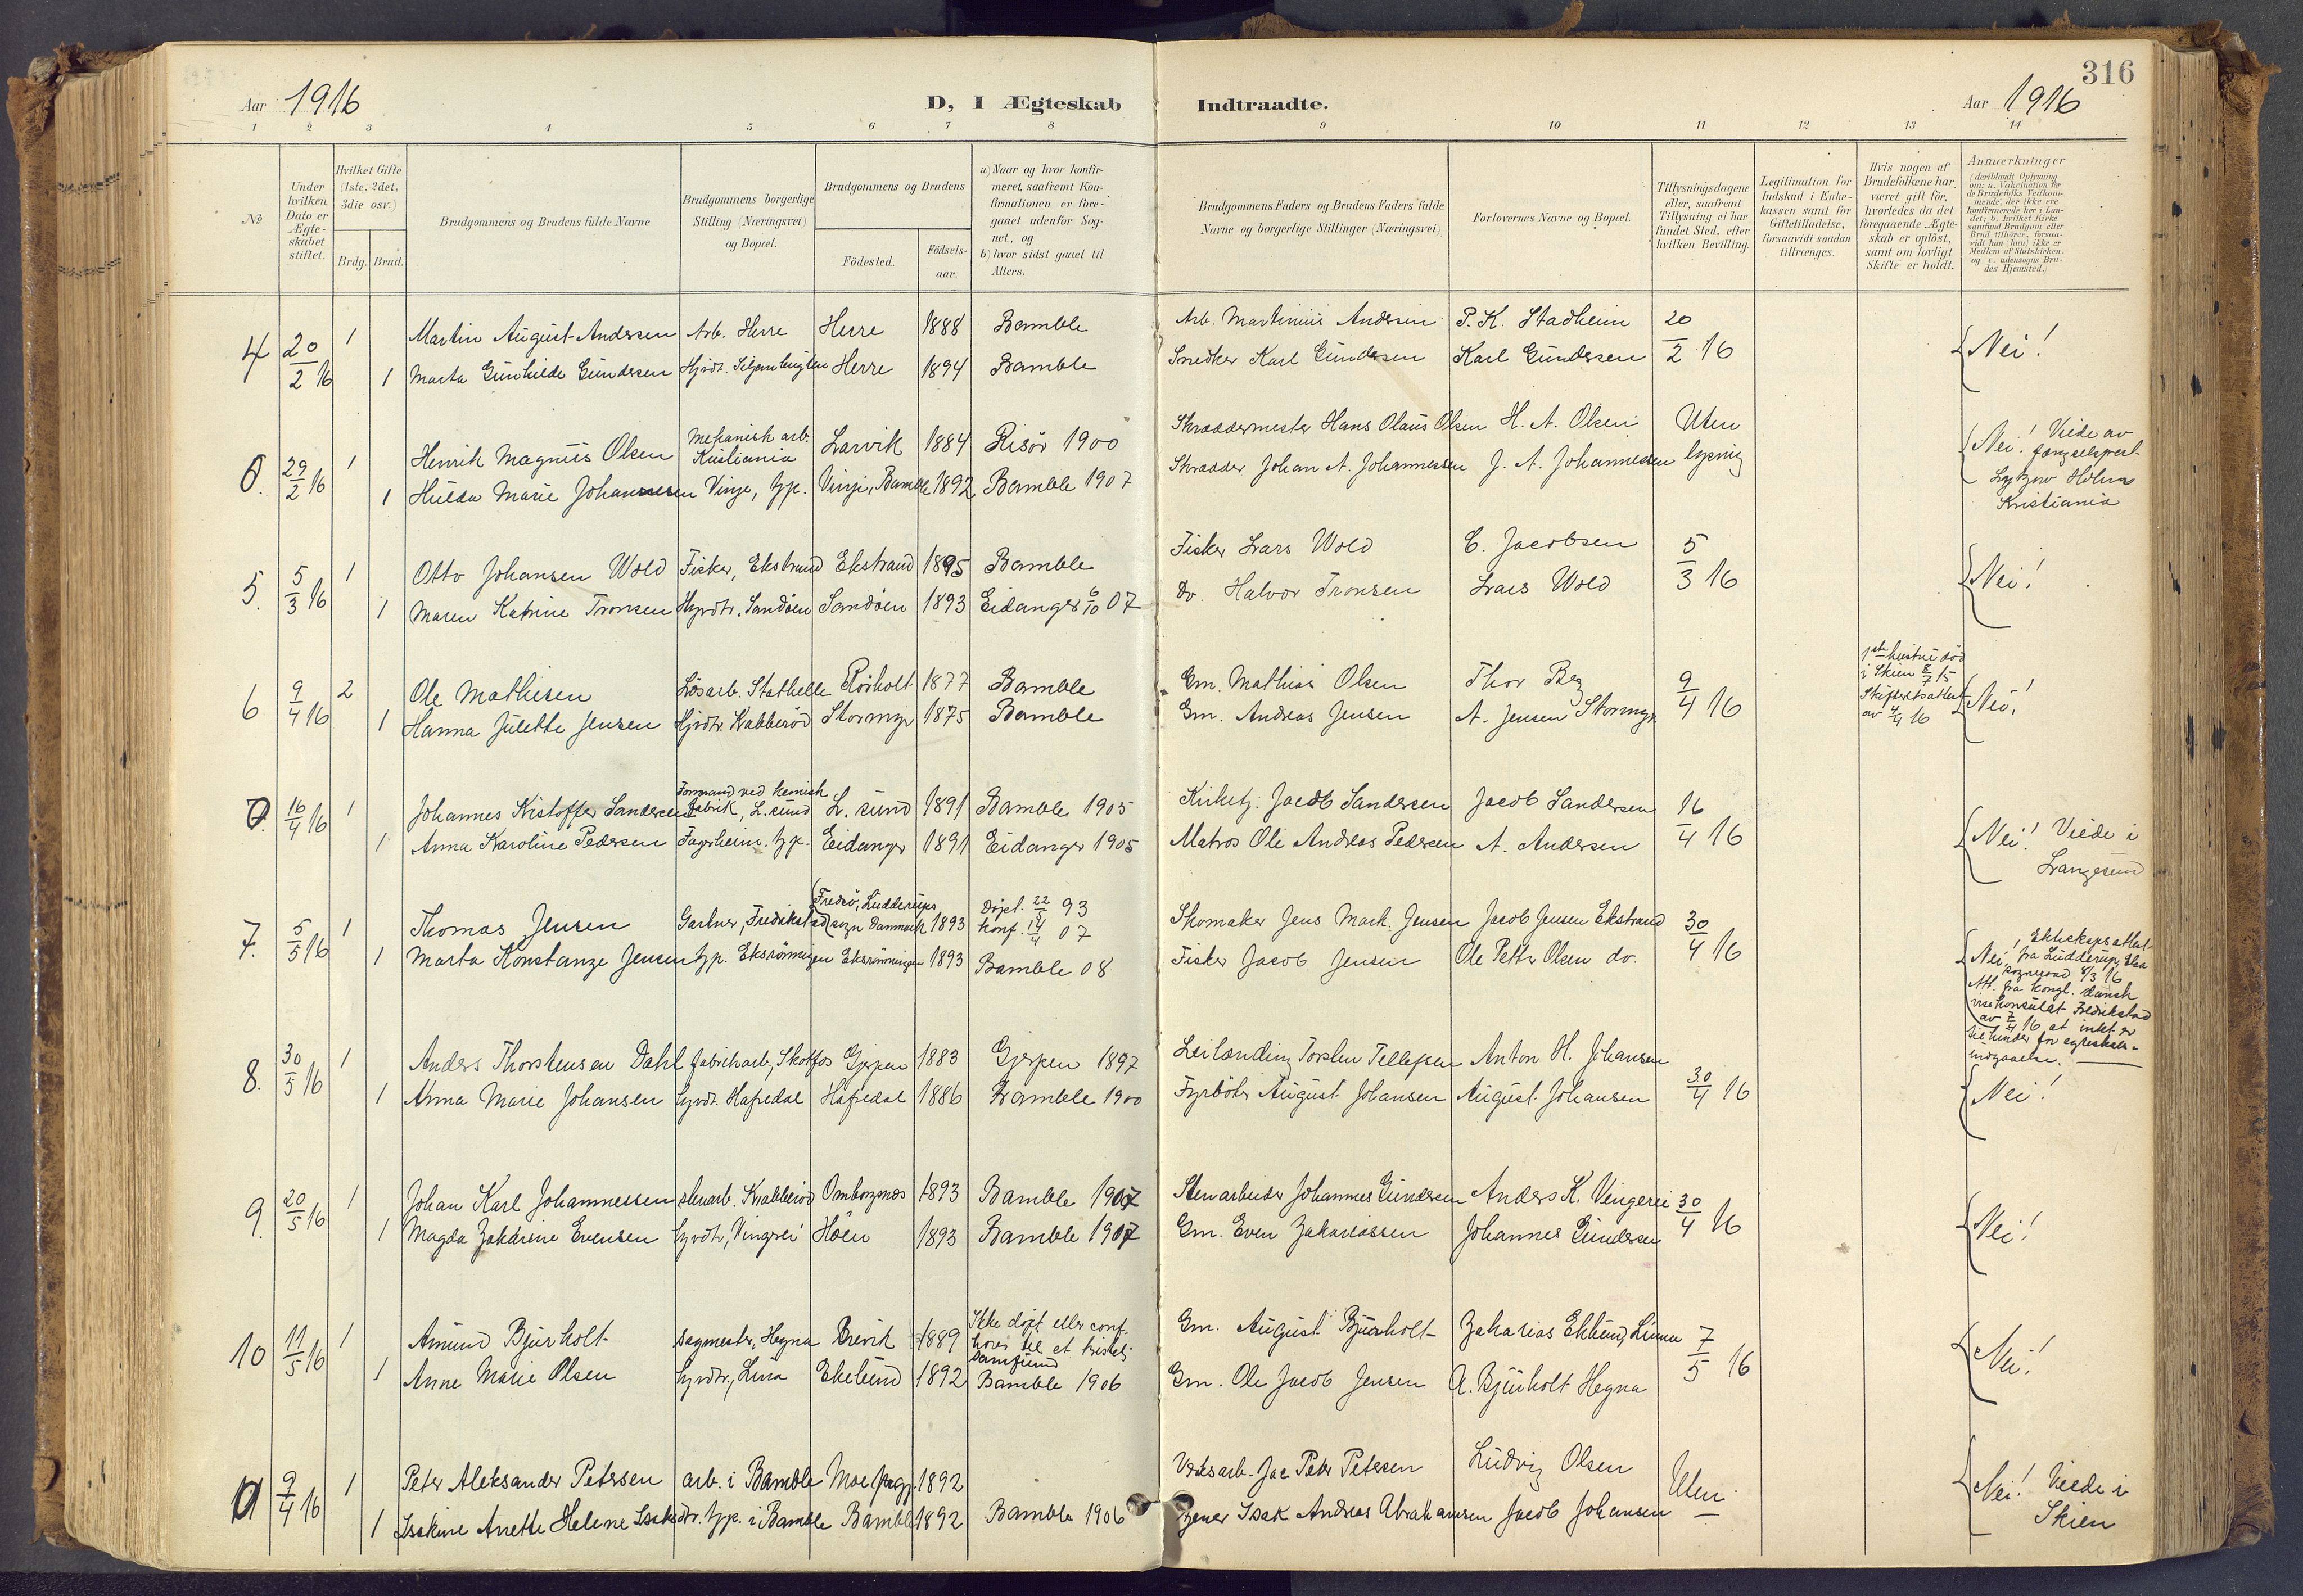 316
Aar 1916
D, I Ægteskab Indtraadte.
Aar 1916
1 2 3 4 5 6 7 8 9 10 11 12 13 14
No
Under hvilken Dato er Ægteskabet stiftet.
Hvilket Gifte (1ste, 2det, 3die osv.)
Brdg. Brud.
Brudgommens og Brudens fulde Navne
Brudgommens borgerlige Stilling (Næringsvei) og Bopæl.
Brudgommens og Brudens
Födested.
Födselsaar.
a) Naar og hvor konfirmeret, saafremt Konfirmationen er foregaaet udenfor Sognet, og
b) hvor sidst gaaet til Alters.
Brudgommens Faders og Brudens Faders fulde Navne og borgerlige Stillinger (Næringsvei)
Forlovernes Navne og Bopæl.
Tillysningsdagene eller, saafremt Tillysning ei har fundet Sted, efter hvilken Bevilling.
Legitimation for Indskud i Enkekassen samt for Giftetilladelse, forsaavidt saadan tiltrænges.
Hvis nogen af Brudefolkene har været gift för, hvorledes da det foregaaende Ægteskab er oplöst, samt om lovligt Skifte er holdt.
Anmærkninger (deriblandt Oplysning om: a. Vakcination for de Brudefolks Vedkommende, der ikke ere konfirmerede her i Landet; b. hvilket Kirkesamfund Brudgom eller Brud tilhörer, forsaavidt han (hun) ikke er Medlem af Statskirken, og c. udensogns Brudes Hjemsted.)
4 20/2 16 1 Martin August Andersen Arb. Herre Herre 1888 Bamble Arb. Martinius Andersen P. K. Stadheim 20/2 16 Nei!
1 Marta Gunhilde Gundersen Herre 1894 Bamble Snedker Karl Gundersen Karl Gundersen
0. 29/2 16 1 Henrik Magnus Olsen Mekanisk arb. Kristiania Larvik 1884 Risör 1900 Skræddermester Hans Olaus Olsen H. A. Olsen Uten lysning Nei! Viede av Holm Kristiania
1 Hulda Marie Johannessen Vinje, hp. Vinje, Bamble 1892 Bamble 1907 Skrædder Johan A. Johannessen J. A. Johannessen
5. 5/3 16 1 Otto Johansen Wold Fisker, Ekstrand Ekstrand 1895 Bamble Fisker Lars Wold C. Jacobsen 5/3 16 Nei!
1 Maren Katrine Tronsen Hjvdtr. Sandöen Sandöen 1893 Eidanger 6/10 07 Do. Halvor Tronsen Lars Wold
6 9/4 16 2 Ole Mathisen Lösarb. Stathelle Rörholt 1877 Bamble Gm. Mathias Olsen Thor Berg 9/4 16 1ste hustru död i Skien 8/7 15 Skifteretsattest av 4/4 16 Nei!
1 Hanna Julette Jensen Hjvdtr. Krabberöd Stormyr 1875 Bamble Gm. Andreas Jensen A. Jensen Stormyr
0. 16/4 16 1 Johannes Kristoffer Sandersen Formand ved kemisk fabrik, L.sund L.sund 1891 Bamble 1905 Kirketj. Jacob Sandersen Jacob Sandersen 16/4 16 Nei! Viede i Langesund
1 Anna Karoline Pedersen Fagerheim. hp. Eidanger 1891 Eidanger 1905 Matros Ole Andreas Pedersen A. Andersen
7. 5/5 16 1 Thomas Jensen Gartner, Fredrikstad (Fredsö, Ludderups sogn Danmark 1893 Döpt. 22/5 93 konf. 14/4 07 Skomaker Jens Mark. Jensen Jacob Jensen Ekstrand 30/4 16 Nei! Ekteskapsattest fra Ludderup sogneraad 8/3 16 Att. fra kongl. dansk visekonsulat Fredrikstad av 7/4 16 at intet er til hinder for egteskabs-indgaaelse.
1 Marta Konstanze Jensen hp. Eksrönningen Eksrönningen 1893 Bamble 08 Fisker Jacob Jensen Ole Petter Olsen do.
8. 30/5 16 1 Anders Thorstensen Dahl fabrikarb., Skotfos Gjerpen 1883 Gjerpen 1897 Leilænding Torsten Tellefsen Anton H. Johansen 30/4 16 Nei!
1 Anna Marie Johansen hjvdt. Hafredal Hafredal 1886 Bamble 1900 Fyrböter August Johansen August Johansen
9. 20/5 16 1 Johan Karl Johannessen stenarb. Krabberöd Omborgsnes 1893 Bamble 1907 Stenarbeider Johannes Gundersen Anders K. Vingerei 30/4 16 Nei!
1 Magda Zakarine Evensen hjvdtr, Vingerei Höen 1893 Bamble 1907 Gm. Even Zakariassen Johannes Gundersen
10 11/5 16 1 Amund Bjurholt sagmester, Hegna Brevik 1889 Ikke döpt eller conf. hörer til et kristelj samfund Gm. August Bjurholt Zakarias Eklund, Linna 7/5 16 Nei!
1 Anne Marie Olsen hjvdtr, Lina Ekelund 1892 Bamble 1906 Gm. Ole Jacob Jensen A. Bjurholt Hegna
0 9/4 16 1 Peter Aleksander Petersen arb. i Bamble Moe 1892 Verksarb. Jac Peter Petersen Ludvig Olsen Uten Nei! Viede i Skien
1 Isakine Anette Helene Isaksdtr. hp. i Bamble Bamble 1892 Bamble 1906 Isak Andreas Abrahamsen Jacob Johansen